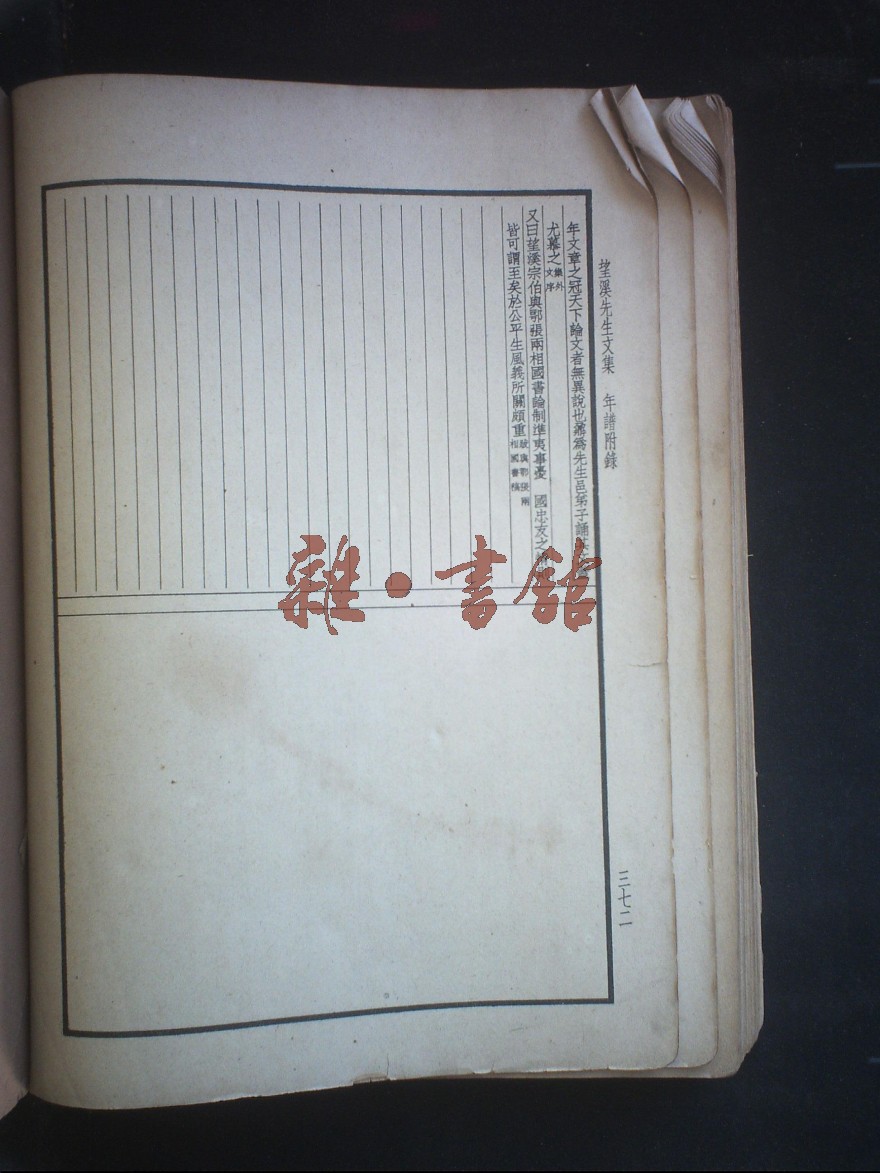 望溪先生文集 年譜附錄
年文章之冠天下論文者無異說也蕭爲先生邑弟子誦
尤慕之集外文序
又曰望溪宗伯與鄂張兩相國書論制準夷事憂 國忠友之
皆可謂至矣於公平生風義所關頗重跋與鄂張兩相國書稿
三七二
雜·書館